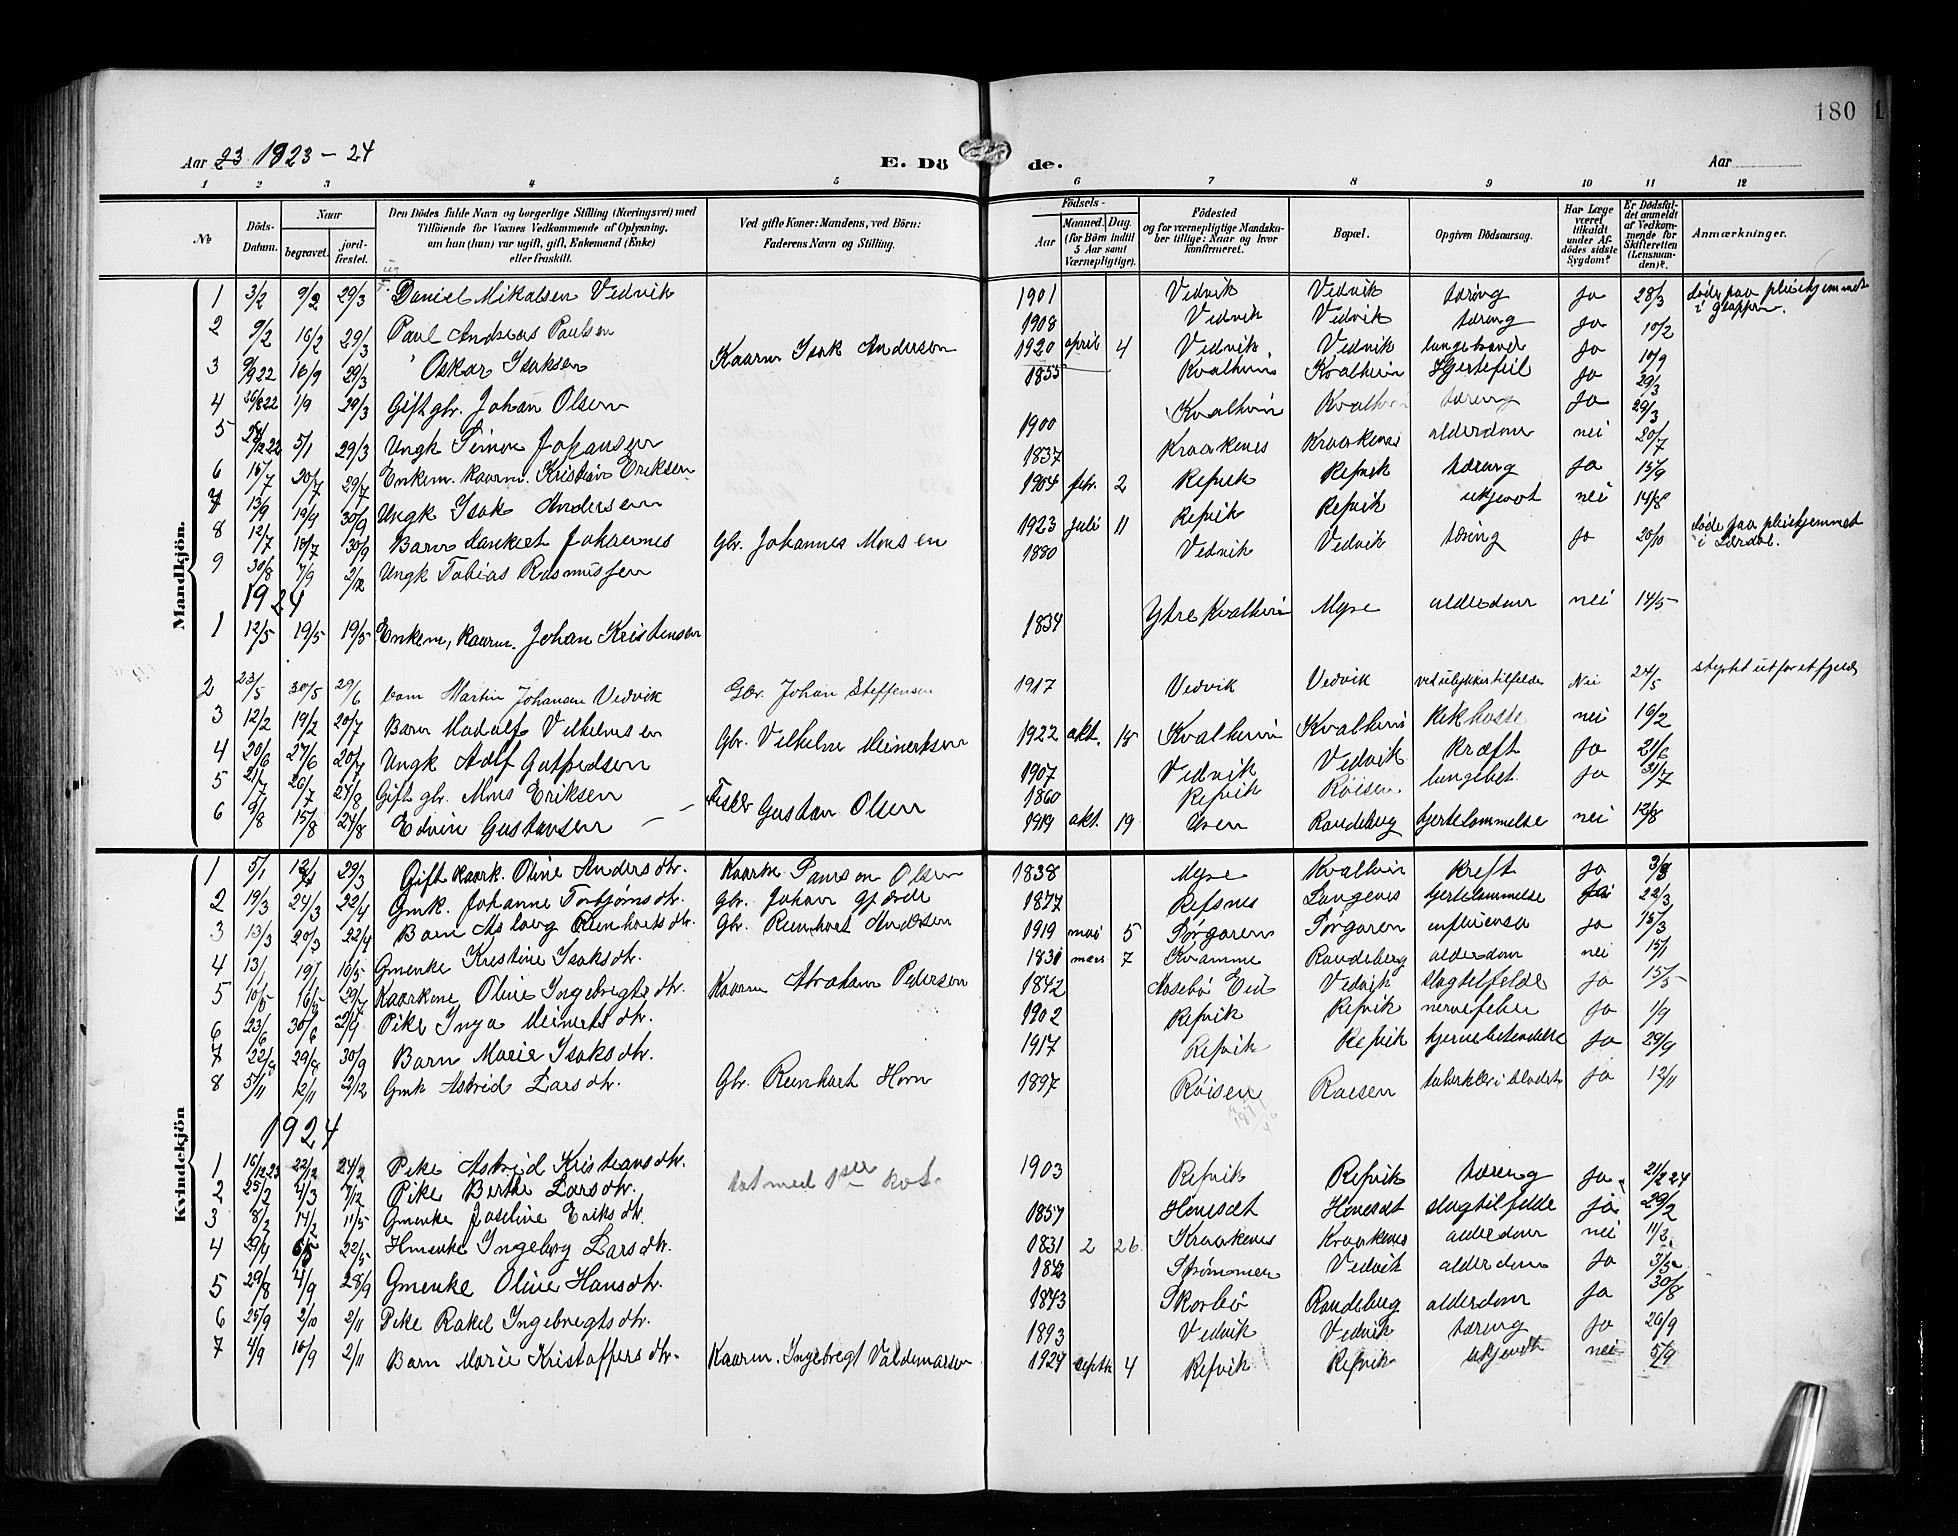 180
Aar 23 1923 - 24
E. Dö de.
Aar
1 2 3 4 5 6 7 8 9 10 11 12
No
Döds-Datum.
Naar
begravet. jord-fæstet.
Den Dödes fulde Navn og borgerlige Stilling (Næringsvei) med Tilföiende for Voxnes Vedkommende af Oplysning, om han (hun) var ugift, gift, Enkemand (Enke) eller fraskilt.
Ved gifte Koner: Mandens, ved Börn: Faderens Navn og Stilling.
Födsels-
Aar Maaned. Dag.
(for Börn indtil 5 Aar samt Værnepligtige).
Födested og for værnepligtige Mandskaber tillige: Naar og hvor konfirmeret.
Bopæl.
Opgiven Dödsaarsag.
Har Læge været tilkaldt under Afdödes sidste Sygdom?
Er Dödsfaldet anmeldt af Vedkommende for Skifteretten (Lensmanden)?
Anmærkninger.
Mandkjön.
1 3/2 9/2 29/3 Daniel Mikalsen Vedvik 1901 Vedvik Vedvik tæring Ja 28/3 döde paa pleiehjemmet i
2 9/2 16/2 29/3 Paul Andreas Paulsen 1908 Vedvik Vedvik tæring Ja 10/2
3 9/9 22 16/9 29/3 Oskar Isaksen Kaarm Isak Andersen 1920 april 4 Vedvik Vedvik Ja 10/9
4 26/8 22 1/9 29/3 Gift gbr. Johan Olsen 1855 Kvalheim Kvalheim Hjertefeil Ja 29/3
5 5/1 29/3 Ungk Simon Johansen 1900 Kvalheim Kvalheim tæring Ja 29/3
6 16/7 20/7 29/7 Enkem. kaarm. Kristian Eriksen 1837 Kraakenes Kraakenes alderdom nei 20/7
7 13/9 19/9 30/9 Ungk Isak Andersen 1904 febr. 2 Refvik Refvik tæring Ja 15/9
8 12/7 18/7 30/9 Barn Johannes Gbr. Johannes Monsen 1923 juli 11 Refvik Refvik ukjendt nei 14/8
9 30/8 7/9 2/12 Ungk Tobias Rasmussen 1880 Vedvik Vedvik tæring Ja 20/10 döde paa pleiehjemmet i Lærdal.
1924
1 12/5 19/5 19/5 Enkem, kaarm. Johan Kristensen 1834 Ytre Kvalheim Myre alderdom nei 14/5
2 23/5 30/5 29/6 barn Martin Johansen Vedvik Gbr. Johan Steffensen 1917 Vedvik Vedvik ved ulykkestilfelde Nei 24/5 styrtet ut for et fjeld
3 12/2 19/2 20/7 Barn Vilhelmsen Gbr. Vilhelm Meinertsen 1922 okt. 18 Kvalheim Kvalheim kikhoste nei 16/2
4 20/6 27/6 20/7 Ungk Adolf 1907 Vedvik Vedvik kræft Ja 21/6
5 21/7 26/7 24/8 Gift gbr. Mons Eriksen 1860 Refvik Röisen lungebet. Ja 31/7
6 9/8 15/8 24/8 Edvin Gustavsen — — Fisker Gustav Olsen 1919 okt. 19 Raudeberg hjertelammelse nei 12/8
Kvindekjön
1 5/1 29/3 Gift kaark. Oline Andersdtr. Kaarm Samson Olsen 1838 Myre Kvalheim kreft Ja 3/3
2 19/3 24/3 22/4 Gmk. Johanne Torbjørnsdtr. Gbr. Johan Gjærde 1877 Refsnes Langenes hjertelammelse Ja 22/3
3 13/3 20/3 22/4 Barn Aslaug Reinhartsdtr. Gbr. Reinhart Andersen 1919 mai 5 Sørgaren Sørgaren influensa Ja 15/3
4 13/1 19/1 10/5 Gmenke Kristine Isaksdtr. 1831 mars 7 Kvamme Raudeberg alderdom nei 15/1
5 10/5 16/5 29/7 Kaarkone Oline Ingebregtsdtr. Kaarm Abraham Pedersen 1842 Aasebø Eid Vedvik slagtilfelde Ja 15/5
6 23/6 30/6 2/9 Pike Inga Meinertsdtr. 1902 Refvik Refvik nervefeber Ja 1/9
7 22/9 29/9 30/9 Barn Marie Isaksdtr. 1917 Refvik Refvik hjernebetendelse Ja 29/9
8 5/11 12/11 2/12 Gmk Astrid Larsdtr. Gbr. Reinhart Horn 1897 Röisen Raesen tuberkler i blodet Ja 12/11
1924
1 16/12 23 22/12 24/2 Pike Astrid Kristiansdtr. 1903 Refvik Refvik tæring Ja 21/2 24
2 25/2 4/3 7/12 Pike Berthe Larsdtr. 1857 Henesdt Henesdt slagtilfelde ja 29/2
3 8/2 14/2 11/5 Gmenke Joseline Eriksdtr. 1831 2 26 Kraakenes Kraakenes alderdom nei 11/2
4 29/4 22/5 Hmenke Ingeborg Larsdtr. Strømmen Vedvik alderdom Ja 3/5
5 29/8 4/9 28/9 Gmenke Oline Hansdtr. 1843 Skorbø Raudeberg alderdom Ja 30/8
6 25/9 2/10 2/11 Pike Rakel Ingebregtsdtr. 1893 Vedvik Vedvik tæring Ja 26/9
7 4/9 10/9 2/11 Barn Marie Kristoffersdtr. Kaarm. Ingebregt Valdemarsen 1924 septbr 4 Refvik Refvik ukjendt nei 5/9